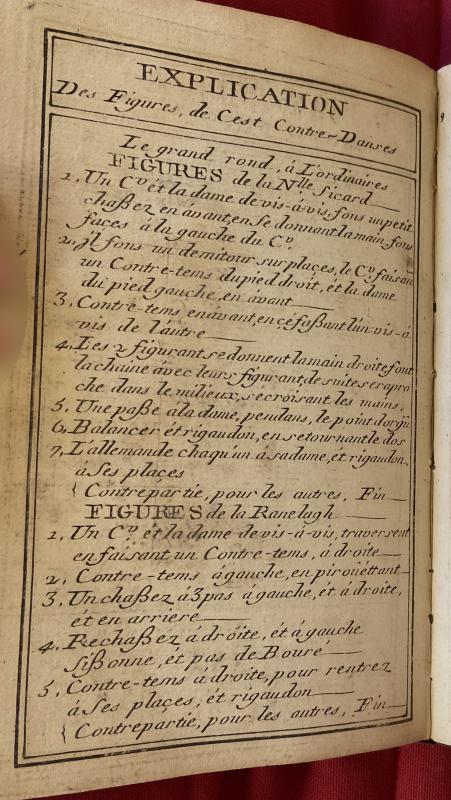 EXPLICATION
Des Figures, de Cest Contre-Danses
Le grand rond, á L'ordinaires
FIGURES de la Nlle Sicard
1, Un Cv. ét la dame de vis-á-vis, fons un petit
chaßez en ávant, en se donnant la main, fons
façes á la gauche du Cv.
2, Jl fons un demitour sur plaçes, le Cv. faisan
un Contre-tems du pied droit, ét la dame
du pied gauche, en ávant
3, Contre-tems en ávant, en çe faßant l'un vis-á
vis de l'áutre
4, Les 2 figurant, se donnent la main droite font
la chaine ávec leurs figurant, de suite serapro
che dans le milieux, se croisant les mains,
5, Une paße á la dame, pendans, le point d'orgü.
6, Balancer ét rigaudon, en se tournant le dos
7, L'allemande chaqu'un á sa dame, ét rigaudon,
á Ses places
Contrepartie, pour les autres, Fin
FIGURES de la Ranelagh
1, Un Cv. ét la dame de vis-á-vis, traversent
en faisant un Contre-tems, á droite
2, Contre-tems á gauche, en piroüéttant
3, Un chaßez á 3 pas á gauche, ét á droite,
ét en arriere
4, Rechaßez á dröite, ét á gauche
Sißonne, ét pas de Bouré
5, Contre-tems á droite, pour rentrez
á Ses plaçes, ét rigaudon
Contrepartie, pour les autres, Fin